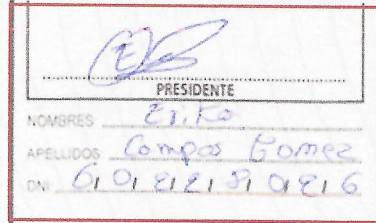 PRESIDENTE
NOMBRES Erika
APELLIDOS Campos Gomez
DNI